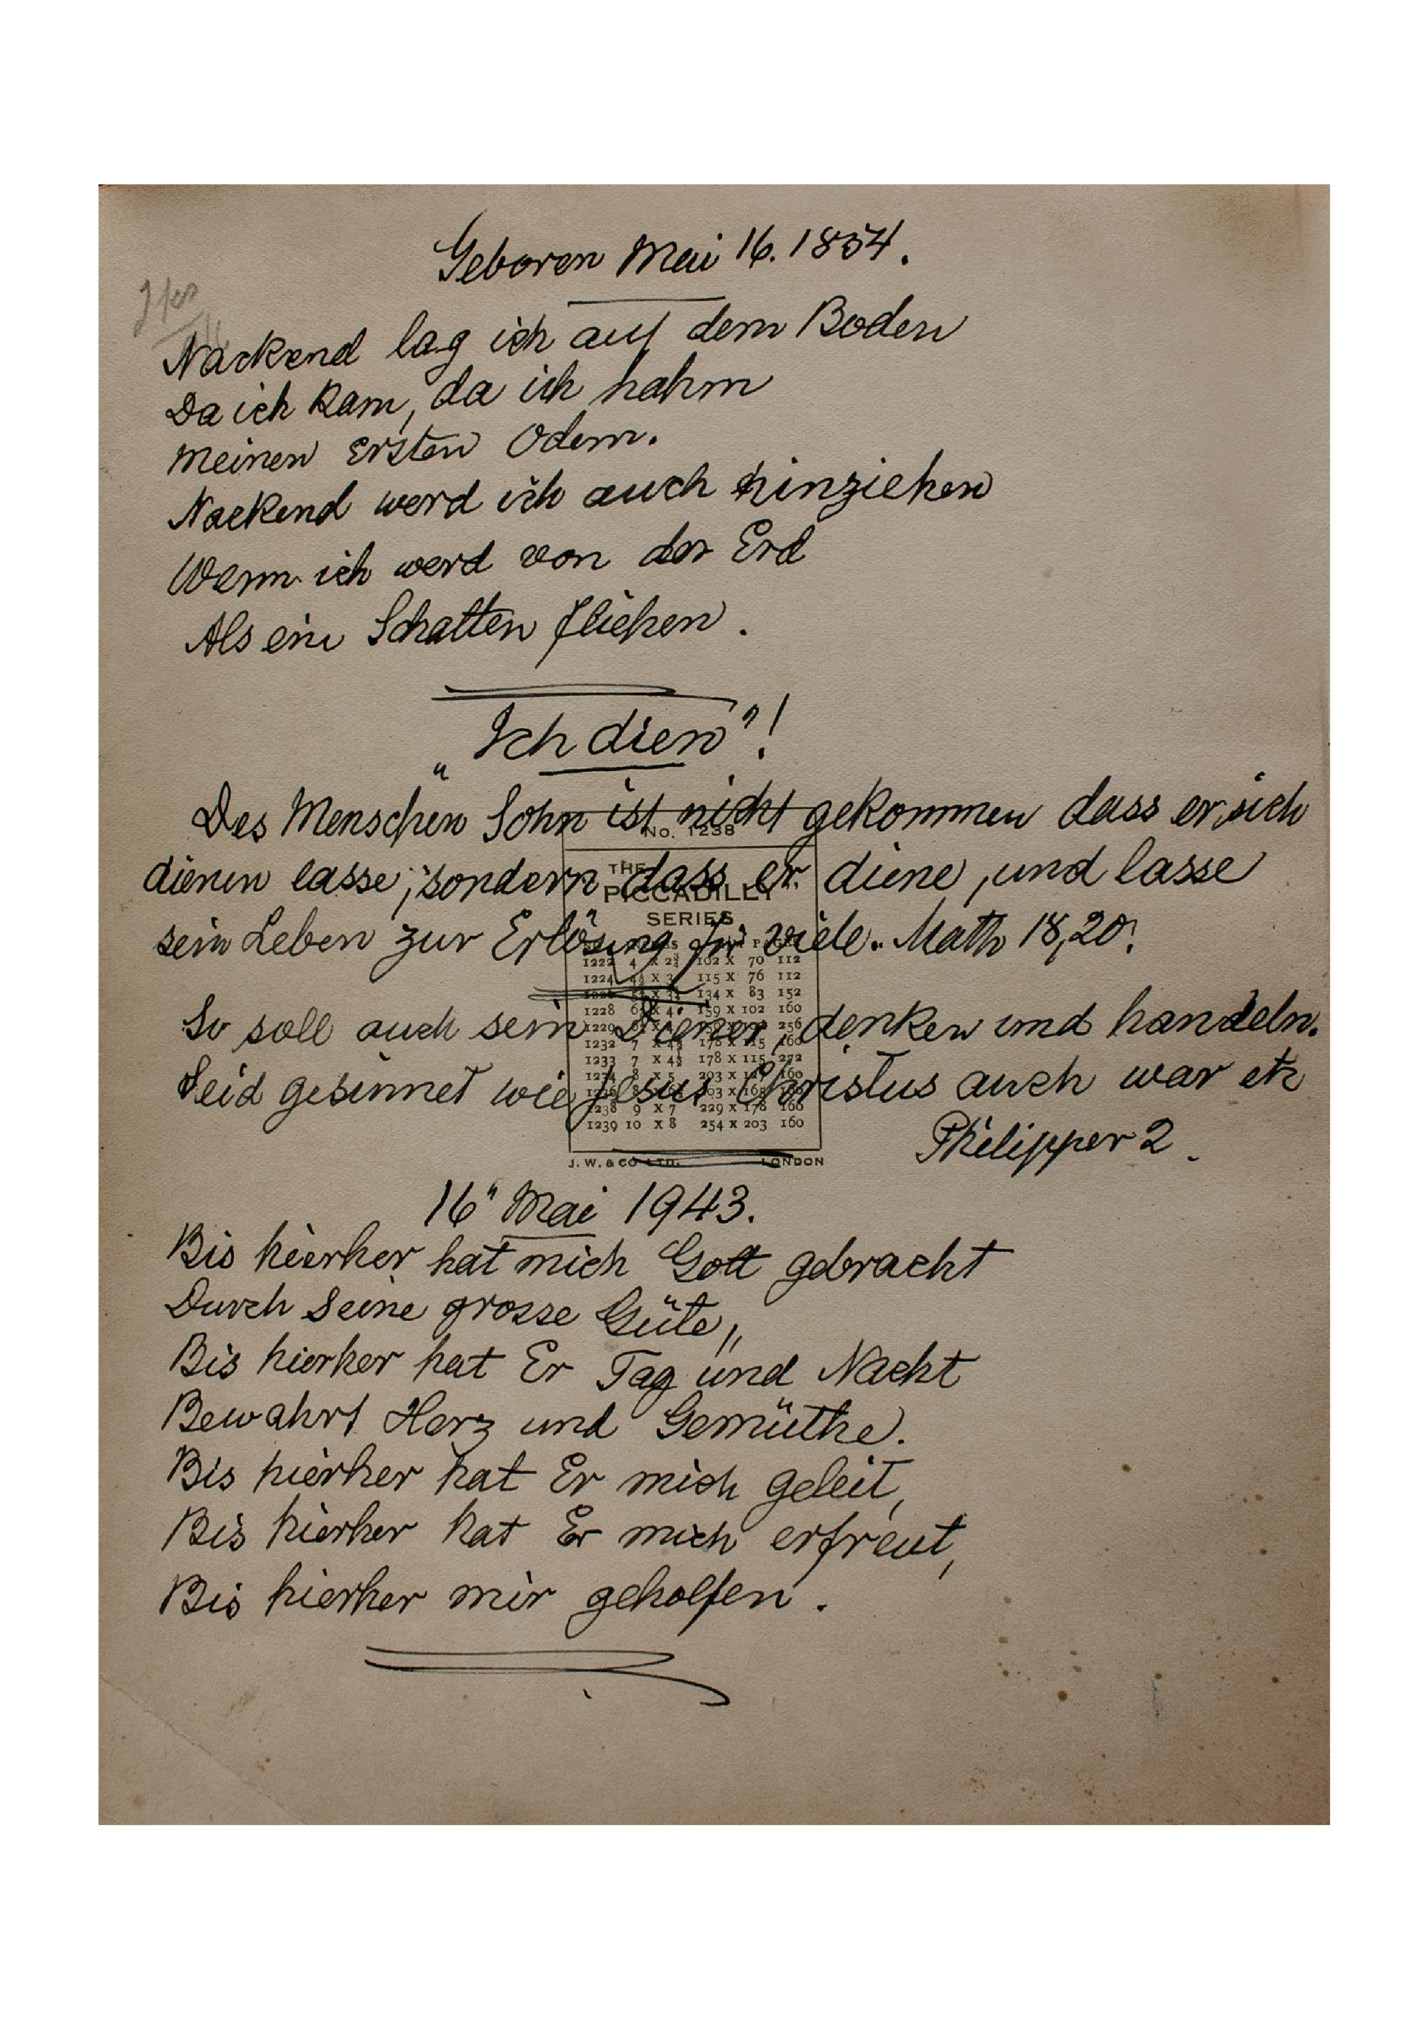 Geboren Mai 16. 1854.
Nackend lag ich auf dem Boden
Da ich kam, da ich nahm
Meinen Ersten Odem.
Nackend werd ich auch hinziehen
Wenn ich werd von der Erd
Als ein Schatten fliehen.
„Ich dien"!
Des Menschen Sohn ist nicht gekommen dass er sich
dienen lasse, sondern dass er diene, und lasse
sein Leben zur Erlösung für viele. Math 18,20.
So soll auch sein Diener, denken und handeln.
Seid gesinnet wie Jesus Christus auch war etc
Philipper 2.
No. 1238
THE
PICCADILLY
SERIES
PAGES
1222 4 x 2¾ 102 x 70 112
1224 4½ x 3 115 x 76 112
134 x 83 152
1228 159 x 102 160
1229 256
1232 7 x 4½ 178 x 115 160
1233 7 x 4½ 178 x 115 272
1234 8 x 5 203 x 127 160
1238 9 x 7 229 x 178 160
1239 10 x 8 254 x 203 160
J. W. & CO. LTD. LONDON
16" Mai 1943.
Bis hierher hat mich Gott gebracht
Durch Seine grosse Güte,,
Bis hierher hat Er Tag und Nacht
Bewahrt Herz und Gemüthe.
Bis hierher hat Er mich geleit,
Bis hierher hat Er mich erfreut,
Bis hierher mir geholfen.